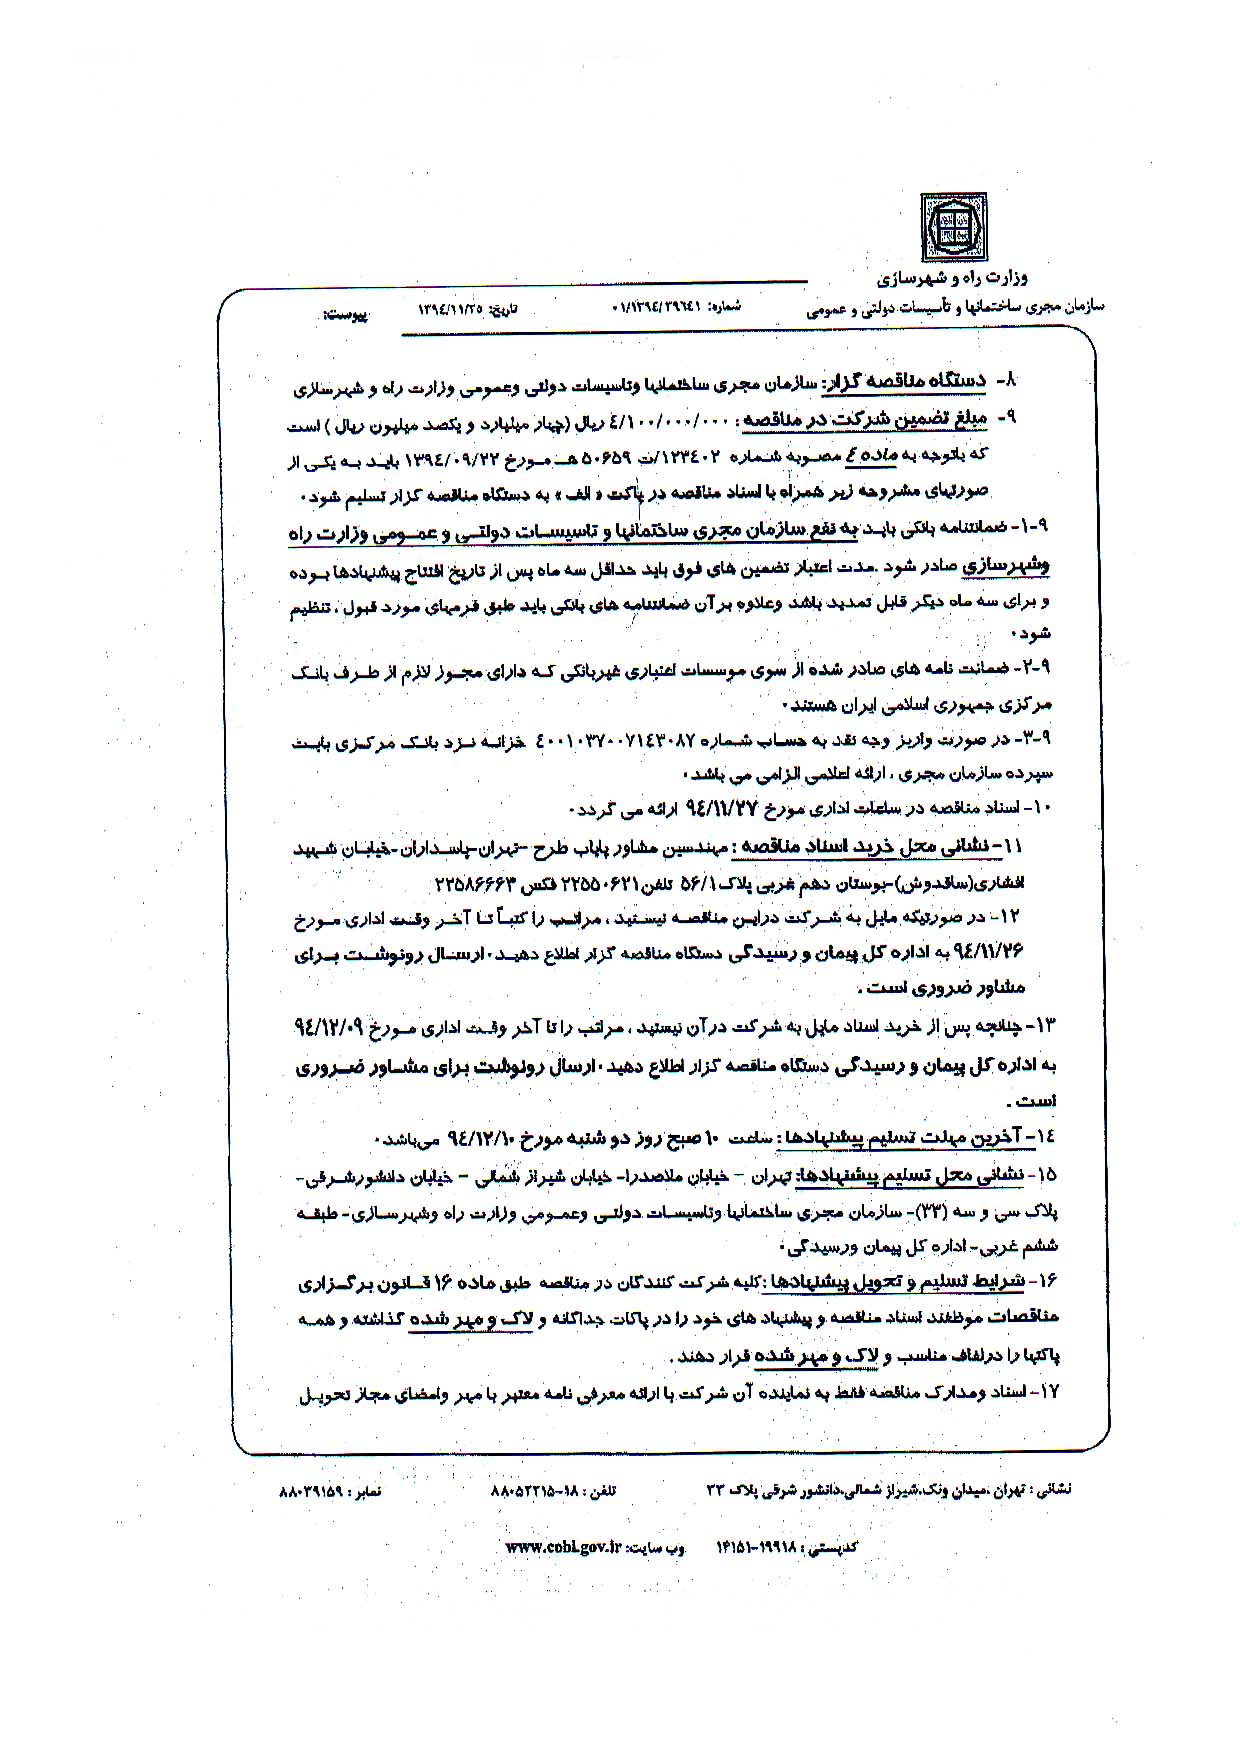 وزارت راه و شهرسازی
سازمان مجری ساختمانها و تأسیسات دولتی و عمومی
شماره: ۰۱/۱۳۹٤/۳۹٦٤۱
تاریخ: ۱۳۹٤/۱۱/۲۵
پیوست:
۸- دستگاه مناقصه گزار: سازمان مجری ساختمانها وتاسیسات دولتی وعمومی وزارت راه و شهرسازی
۹- مبلغ تضمین شرکت در مناقصه : ٤/۱۰۰/۰۰۰/۰۰۰ ریال (چهار میلیارد و یکصد میلیون ریال ) است
که باتوجه به ماده ٤ مصوبه شماره ۱۲۳٤۰۲/ت ۵۰٦۵۹ هـ مورخ ۱۳۹٤/۰۹/۲۲ باید به یکی از
صورتهای مشروحه زیر همراه با اسناد مناقصه در پاکت « الف » به دستگاه مناقصه گزار تسلیم شود.
۹-۱- ضمانتنامه بانکی باید به نفع سازمان مجری ساختمانها و تاسیسات دولتی و عمومی وزارت راه
وشهرسازی صادر شود .مدت اعتبار تضمین های فوق باید حداقل سه ماه پس از تاریخ افتتاح پیشنهادها بوده
و برای سه ماه دیگر قابل تمدید باشد وعلاوه برآن ضمانتنامه های بانکی باید طبق فرمهای مورد قبول ، تنظیم
شود.
۹-۲- ضمانت نامه های صادر شده از سوی موسسات اعتباری غیربانکی که دارای مجوز لازم از طرف بانک
مرکزی جمهوری اسلامی ایران هستند.
۹-۳- در صورت واریز وجه نقد به حساب شماره ٤۰۰۱۰۳۷۰۰۷۱٤۳۰۸۷ خزانه نزد بانک مرکزی بابت
سپرده سازمان مجری ، ارائه اعلامی الزامی می باشد.
۱۰- اسناد مناقصه در ساعات اداری مورخ ۹٤/۱۱/۲۷ ارائه می گردد.
۱۱- نشانی محل خرید اسناد مناقصه : مهندسین مشاور پایاب طرح -تهران-پاسداران-خیابان شهید
افشاری(ساقدوش)-بوستان دهم غربی پلاک ۵٦/۱ تلفن ۲۲۵۵۰٦۲۱ فکس ۲۲۵۸٦٦٦۳
۱۲- در صورتیکه مایل به شرکت دراین مناقصه نیستید، مراتب را کتباً تا آخر وقت اداری مورخ
۹٤/۱۱/۲٦ به اداره کل پیمان و رسیدگی دستگاه مناقصه گزار اطلاع دهید. ارسال رونوشت برای
مشاور ضروری است .
۱۳- چنانچه پس از خرید اسناد مایل به شرکت درآن نیستید ، مراتب را تا آخر وقت اداری مورخ ۹٤/۱۲/۰۹
به اداره کل پیمان و رسیدگی دستگاه مناقصه گزار اطلاع دهید. ارسال رونوشت برای مشاور ضروری
است .
۱٤- آخرین مهلت تسلیم پیشنهادها : ساعت ۱۰ صبح روز دو شنبه مورخ ۹٤/۱۲/۱۰ می‌باشد.
۱۵- نشانی محل تسلیم پیشنهادها: تهران – خیابان ملاصدرا- خیابان شیراز شمالی – خیابان دانشورشرقی-
پلاک سی و سه (۳۳)- سازمان مجری ساختمانها وتاسیسات دولتی وعمومی وزارت راه وشهرسازی- طبقه
ششم غربی- اداره کل پیمان ورسیدگی.
۱٦- شرایط تسلیم و تحویل پیشنهادها :کلیه شرکت کنندگان در مناقصه طبق ماده ۱٦ قانون برگزاری
مناقصات موظفند اسناد مناقصه و پیشنهاد های خود را در پاکات جداگانه و لاک و مهر شده گذاشته و همه
پاکتها را درلفاف مناسب و لاک و مهر شده قرار دهند .
۱۷- اسناد ومدارک مناقصه فقط به نماینده آن شرکت با ارائه معرفی نامه معتبر با مهر وامضای مجاز تحویل
نشانی : تهران ،میدان ونک،شیراز شمالی،دانشور شرقی پلاک ۳۳
تلفن : ۱۸-۸۸۰۵۲۲۱۵
نمابر : ۸۸۰۳۹۱۵۹
کدپستی : ۱۹۹۱۸-۱۴۱۵۱
وب سایت: www.cobi.gov.ir